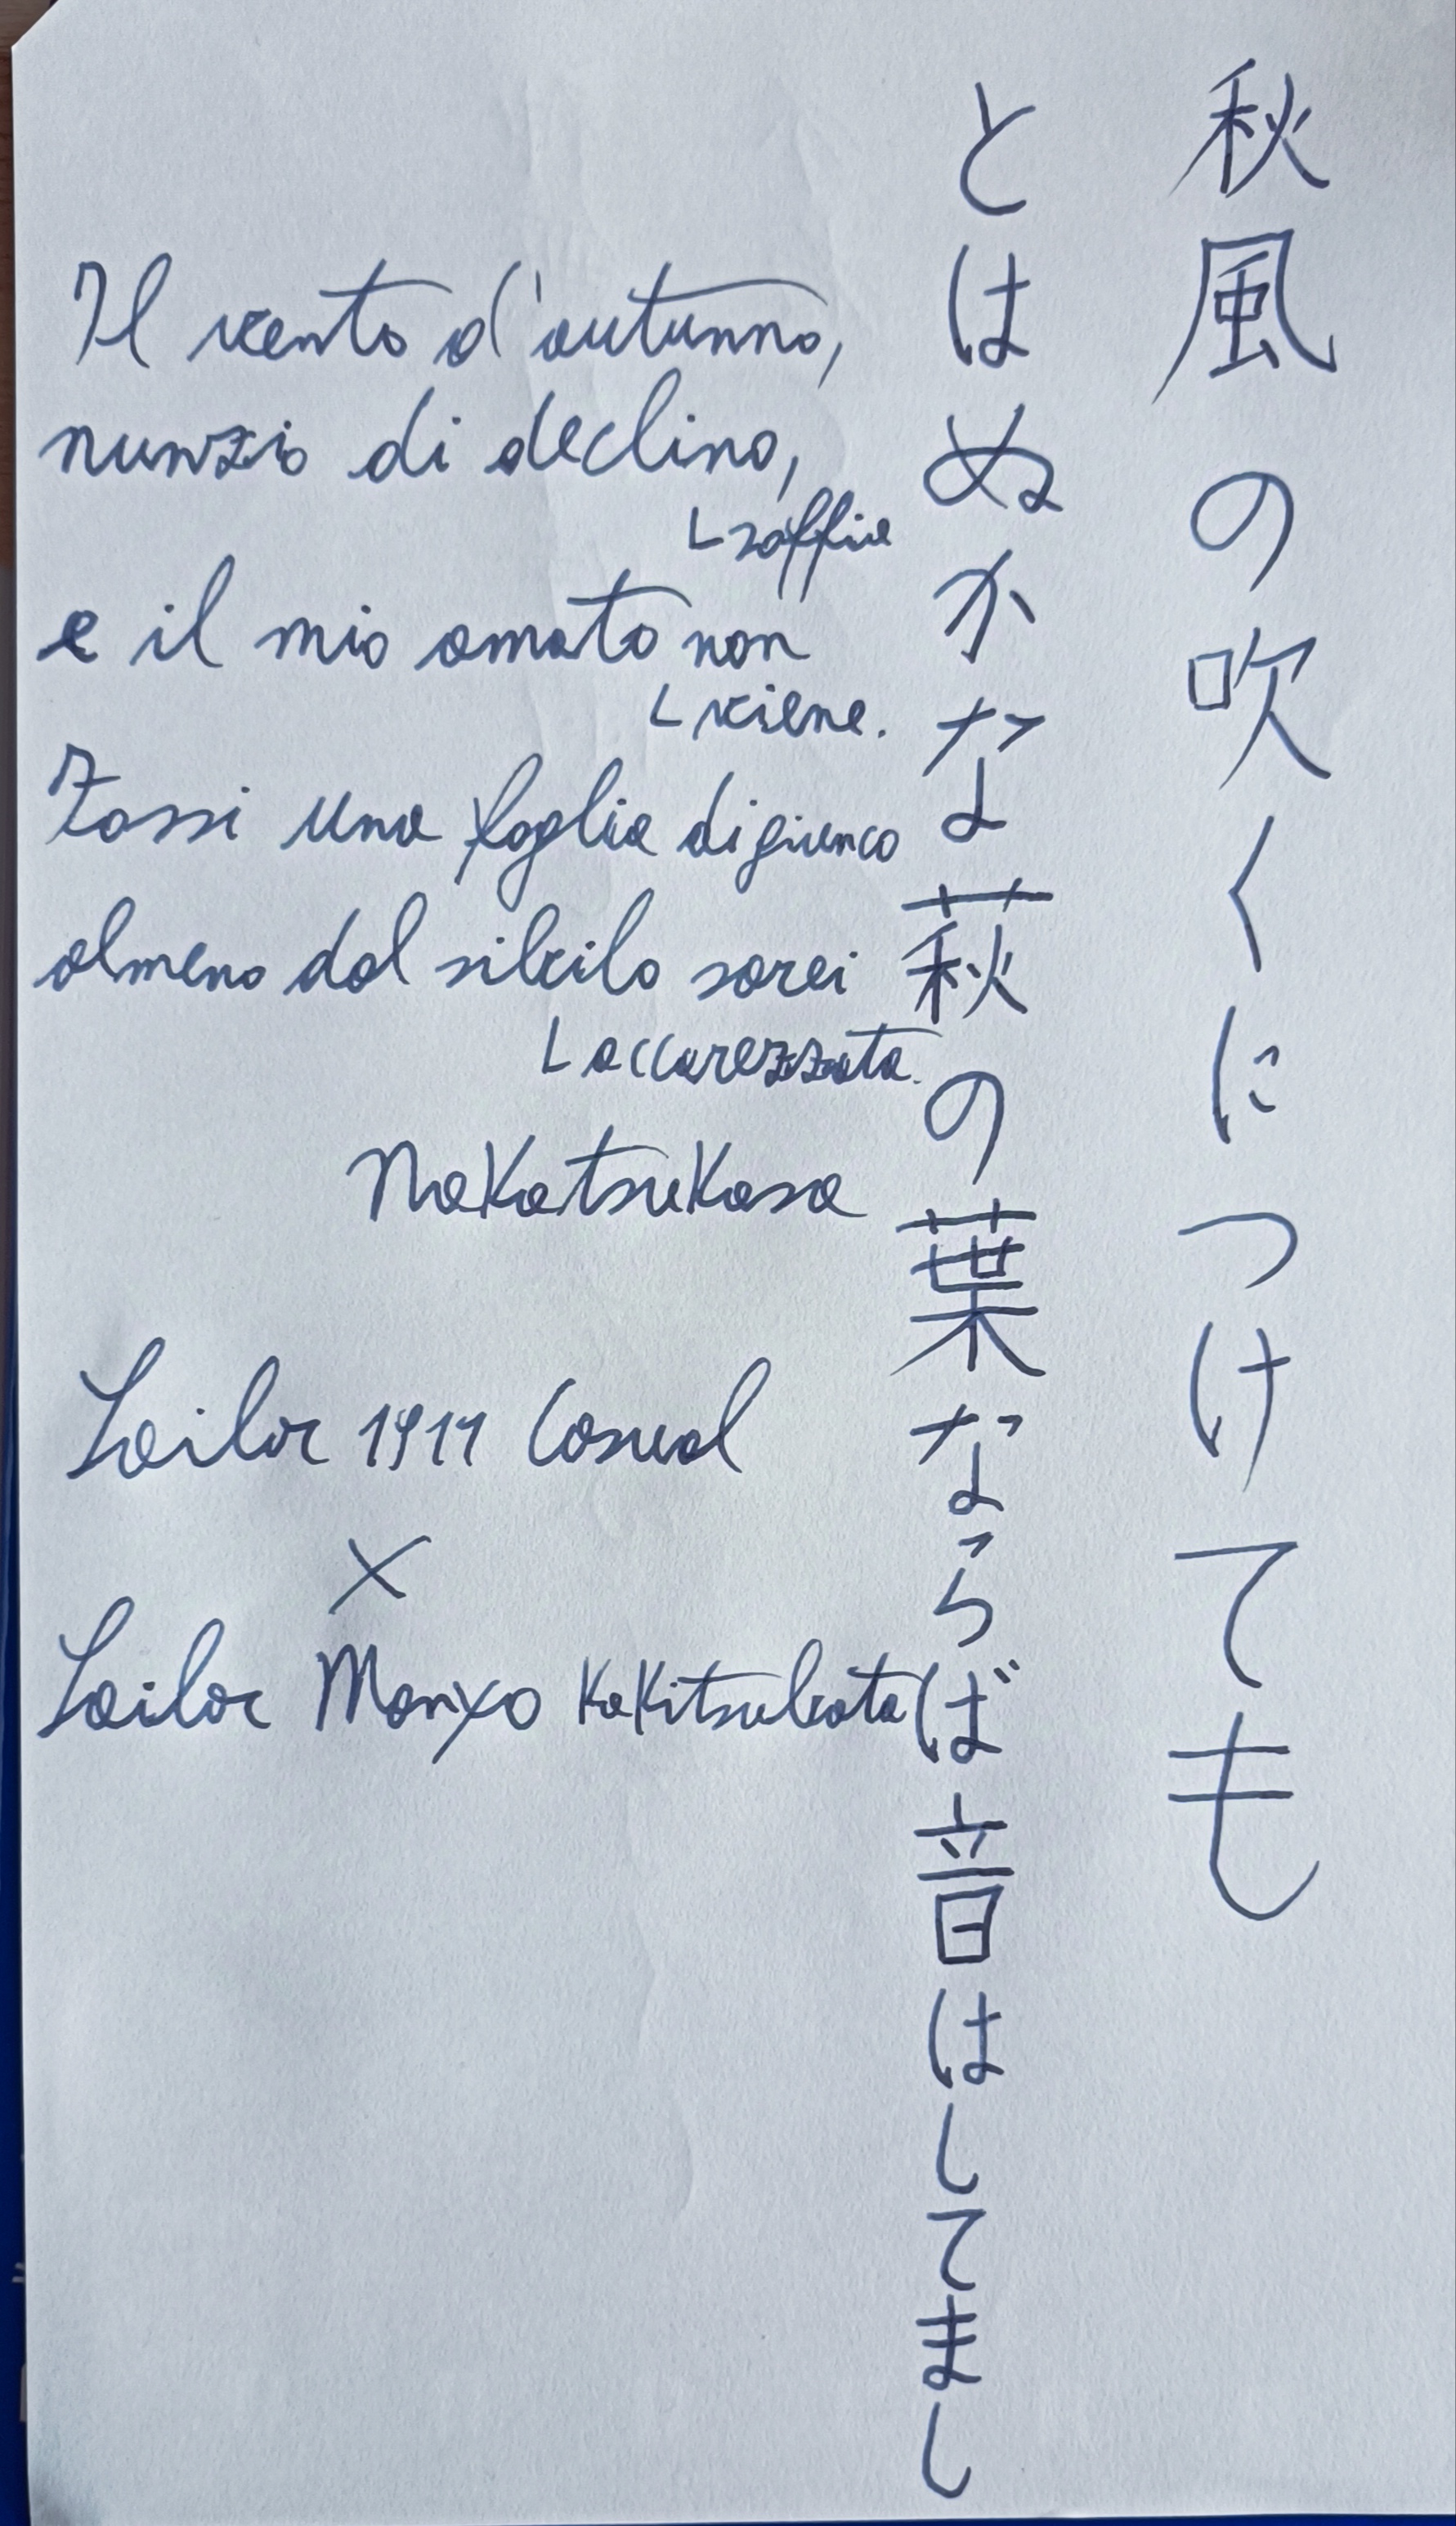 秋風の吹くにつけても
とはぬかな萩の葉ならば音はしてまし
Il vento d'autunno,
nunzio di declino,
soffia
e il mio amato non
viene.
Fossi una foglia di giunco
almeno dal sibilo sarei
accarezzata.
Nakatsukasa
Sailor 1911 Casual
X
Sailor Manyo Kakitsubata